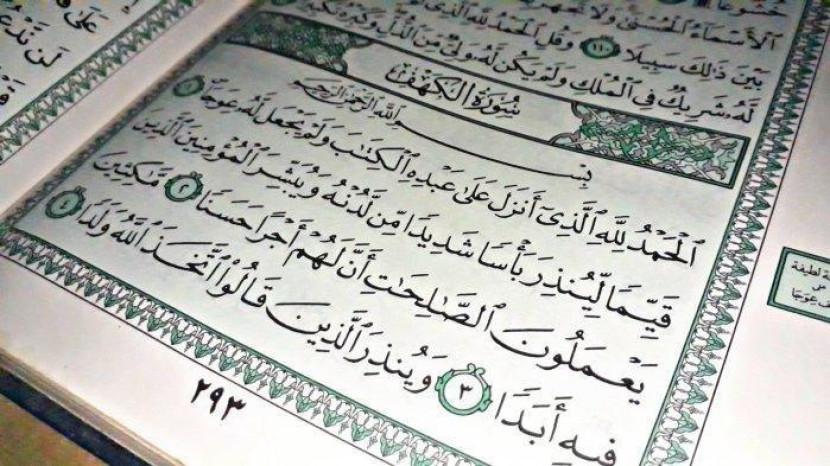 ٱلْأَسْمَآءُ ٱلْحُسْنَىٰ وَلَا تَجْهَرْ
بَيْنَ ذَٰلِكَ سَبِيلًا ١١٠ وَقُلِ ٱلْحَمْدُ لِلَّهِ ٱلَّذِى
لَّهُۥ شَرِيكٌ فِى ٱلْمُلْكِ وَلَمْ يَكُن لَّهُۥ وَلِىٌّ مِّنَ ٱلذُّلِّ وَكَبِّرْهُ تَكْبِيرًۢا
سُورَةُ الْكَهْفِ
بِسْمِ ٱللَّهِ ٱلرَّحْمَٰنِ ٱلرَّحِيمِ
ٱلْحَمْدُ لِلَّهِ ٱلَّذِىٓ أَنزَلَ عَلَىٰ عَبْدِهِ ٱلْكِتَٰبَ وَلَمْ يَجْعَل لَّهُۥ عِوَجَاۜ ١
قَيِّمًا لِّيُنذِرَ بَأْسًا شَدِيدًا مِّن لَّدُنْهُ وَيُبَشِّرَ ٱلْمُؤْمِنِينَ ٱلَّذِينَ
يَعْمَلُونَ ٱلصَّٰلِحَٰتِ أَنَّ لَهُمْ أَجْرًا حَسَنًا ٢ مَّٰكِثِينَ
فِيهِ أَبَدًا ٣ وَيُنذِرَ ٱلَّذِينَ قَالُوا۟ ٱتَّخَذَ ٱللَّهُ وَلَدًا ٤
٢٩٣
لطيفة
على
عِوَجَا